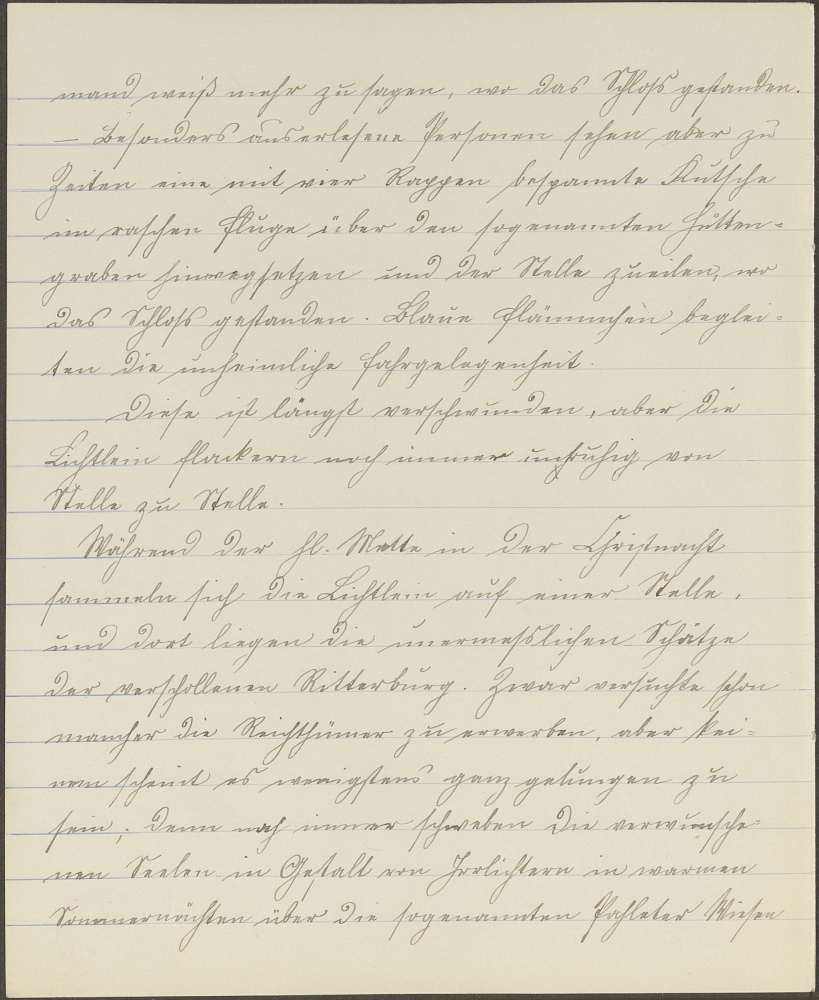 mand weiß mehr zu sagen, wo das Schloss gestanden.
– Besonders auserlesene Personen sehen aber zu
Zeiten eine mit vier Rappen bespannte Kutsche
im raschen Fluge über den sogenannten Hütten-
graben hinwegsetzen und der Stelle zueilen, wo
das Schloss gestanden. Blaue Flämmchen beglei-
ten die unheimliche Fahrgelegenheit.
Diese ist längst verschwunden, aber die
Lichtlein flackern noch immer unruhig von
Stelle zu Stelle.
Während der hl. Mette in der Christnacht
sammeln sich die Lichtlein auf einer Stelle,
und dort liegen die unermesslichen Schätze
der verschollenen Ritterburg. Zwar versuchte schon
mancher die Reichthümer zu erwerben, aber kei-
nem scheint es wenigstens ganz gelungen zu
sein; denn noch immer schweben die verwunsche-
nen Seelen in Gestalt von Irrlichtern in warmen
Sommernächten über die sogenannten Wiesen